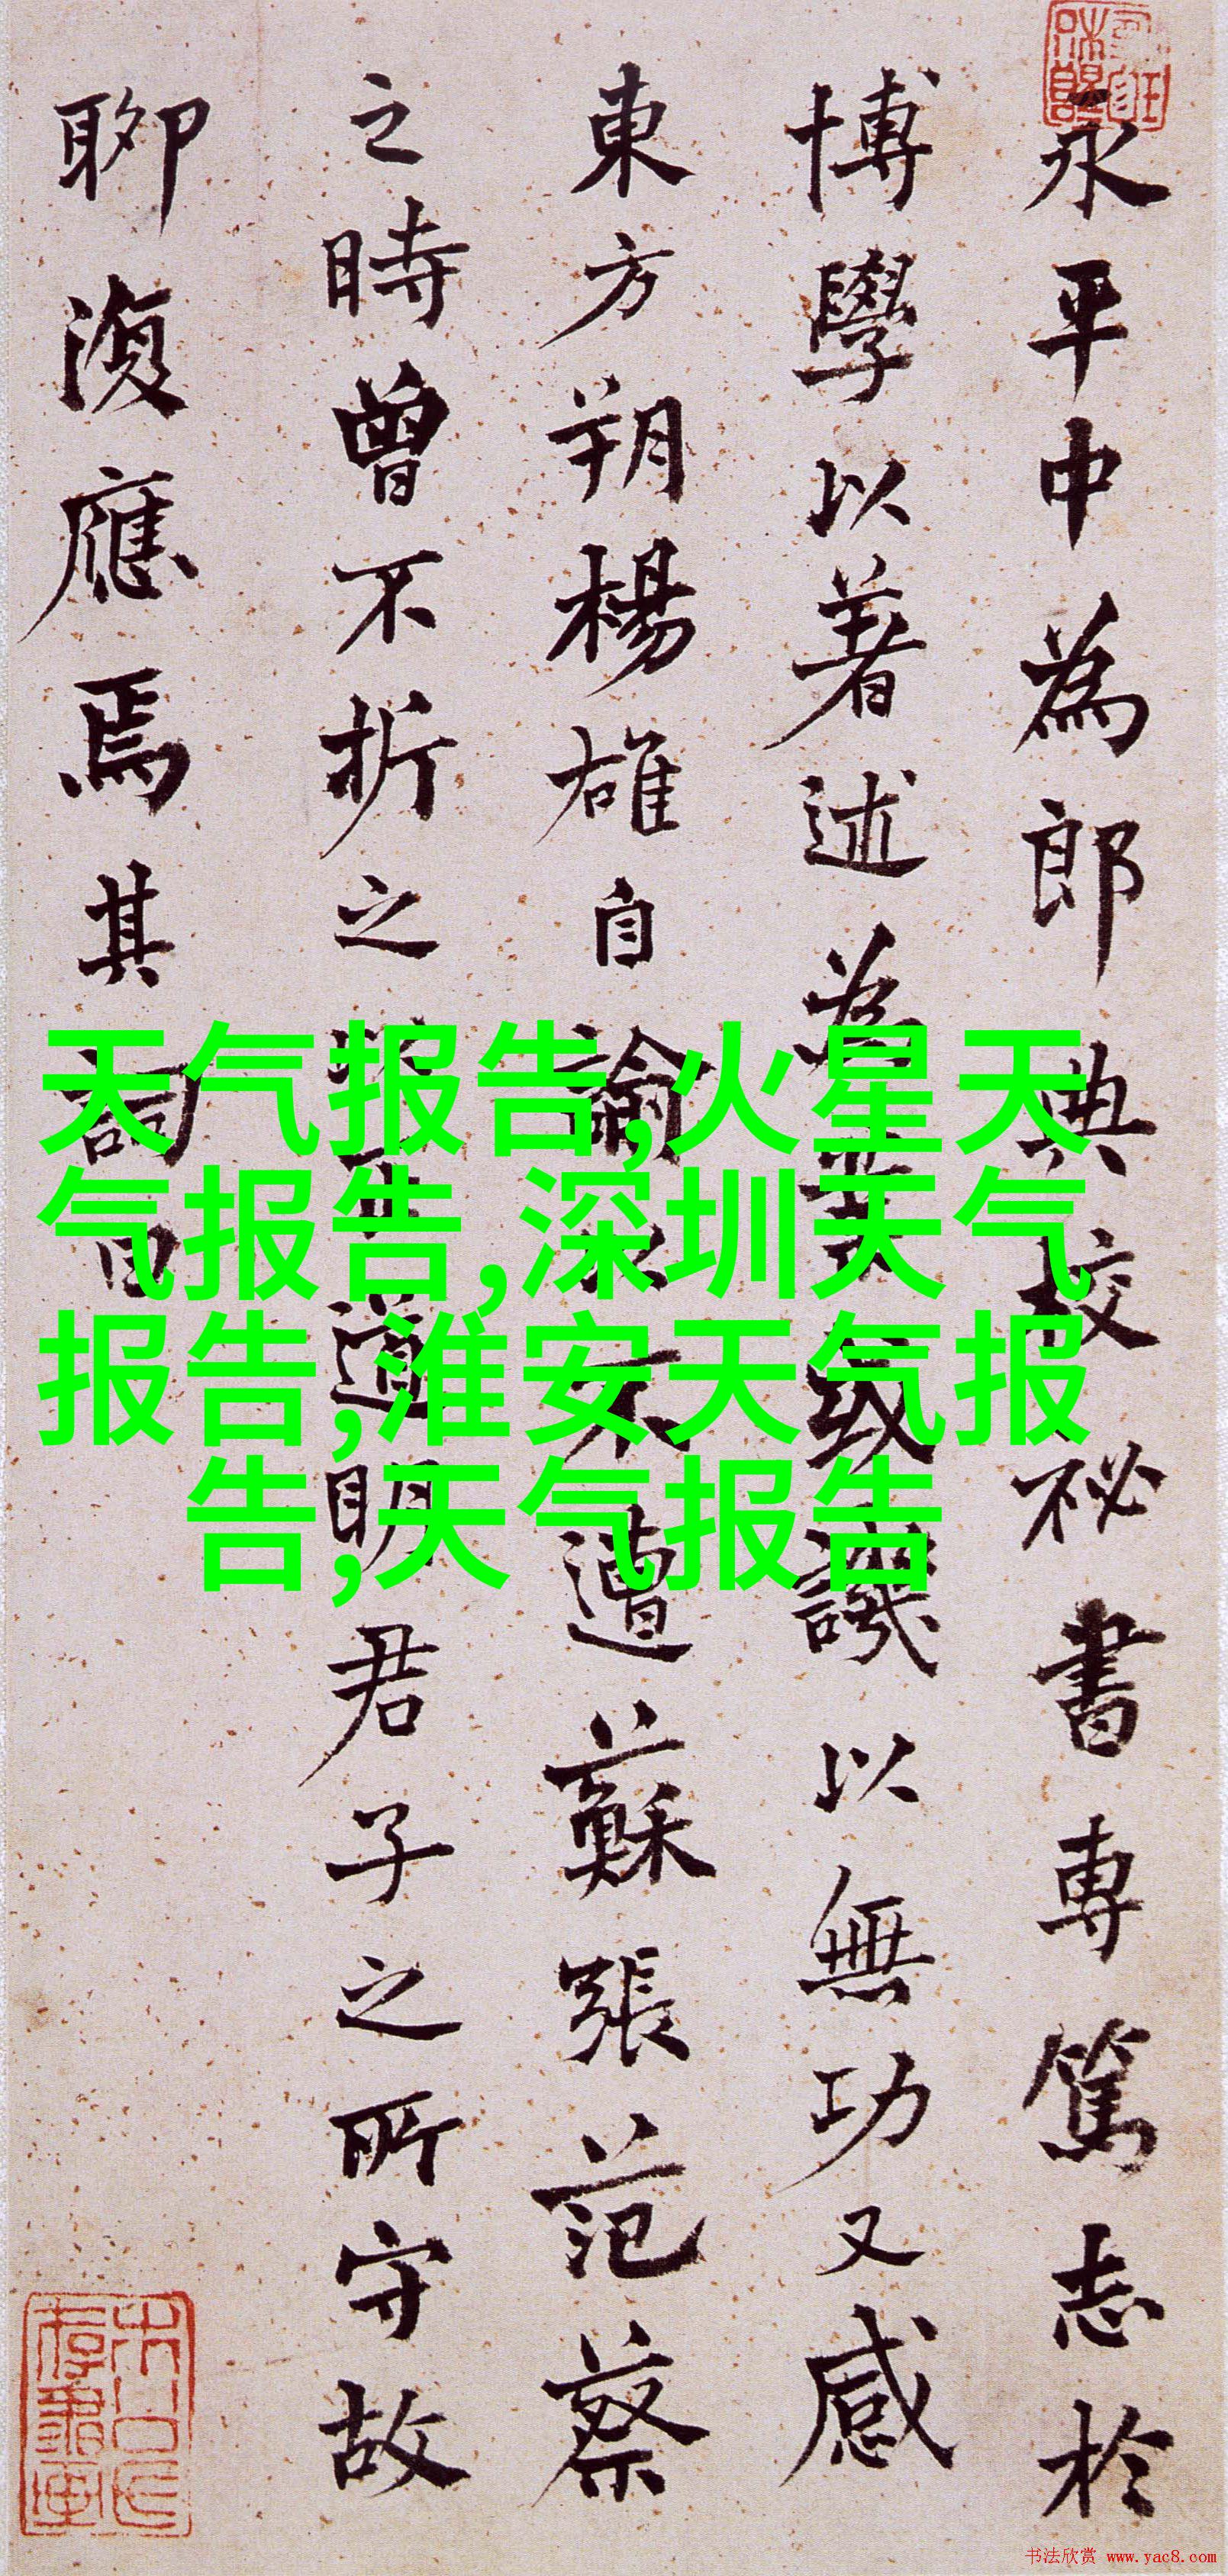 永平中為郎典校祕書專篤志於
博學以著述為業或譏以無功又感
東方朔楊雄自諭以不遭蘇張范蔡
之時曾不折之以正道明君子之所守故
聊復應焉其詞曰
天气报告,火星天
气报告,深圳天气
报告,淮安天气报
告,天气报告
书法欣赏 www.yac8.com